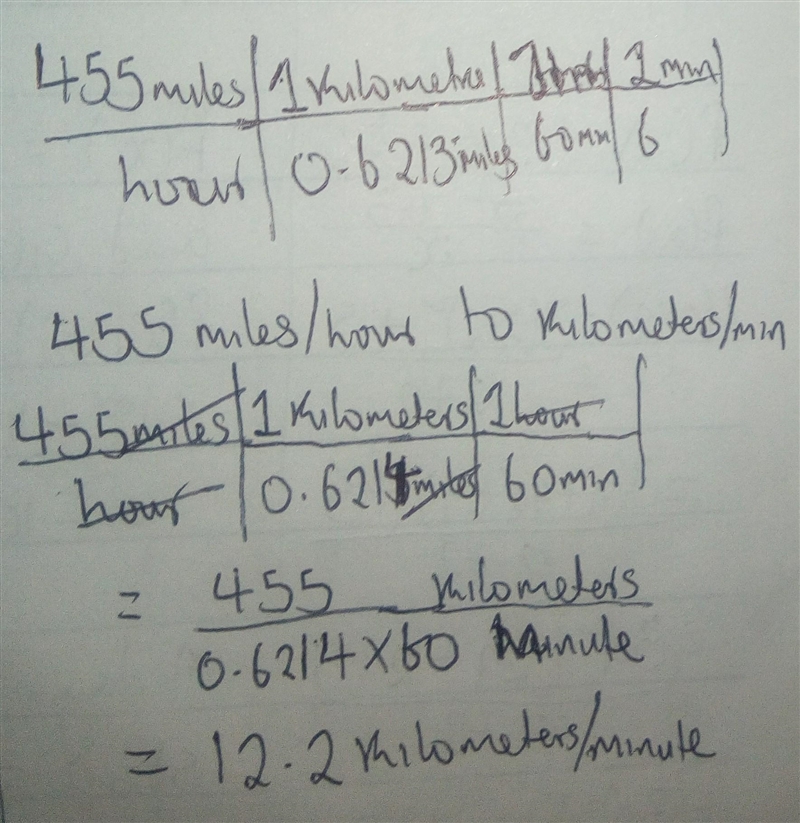 455 miles | 1 Kilometre | 1 | 1 min
hour | 0.6213 miles | 60 min | 6
455 miles/hour to Kilometers/min
455 miles | 1 Kilometers | 1 hour
hour | 0.6214 miles | 60 min
= 455 Kilometers
0.6214 × 60 Minute
= 12.2 Kilometers/minute